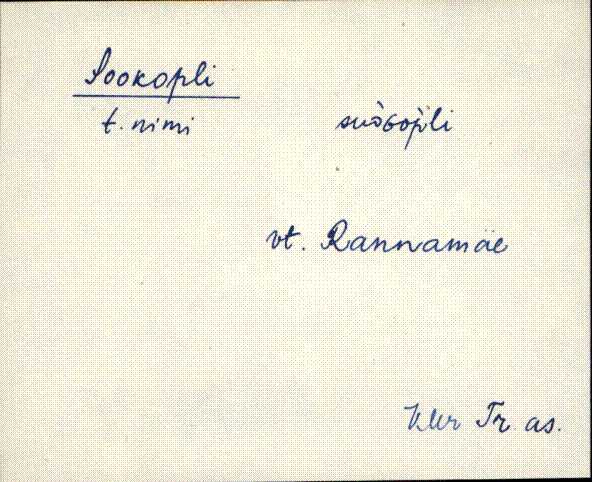 Sookopli
t. nimi suòGop̀li
vt. Rannamäe
Khr Tr as.